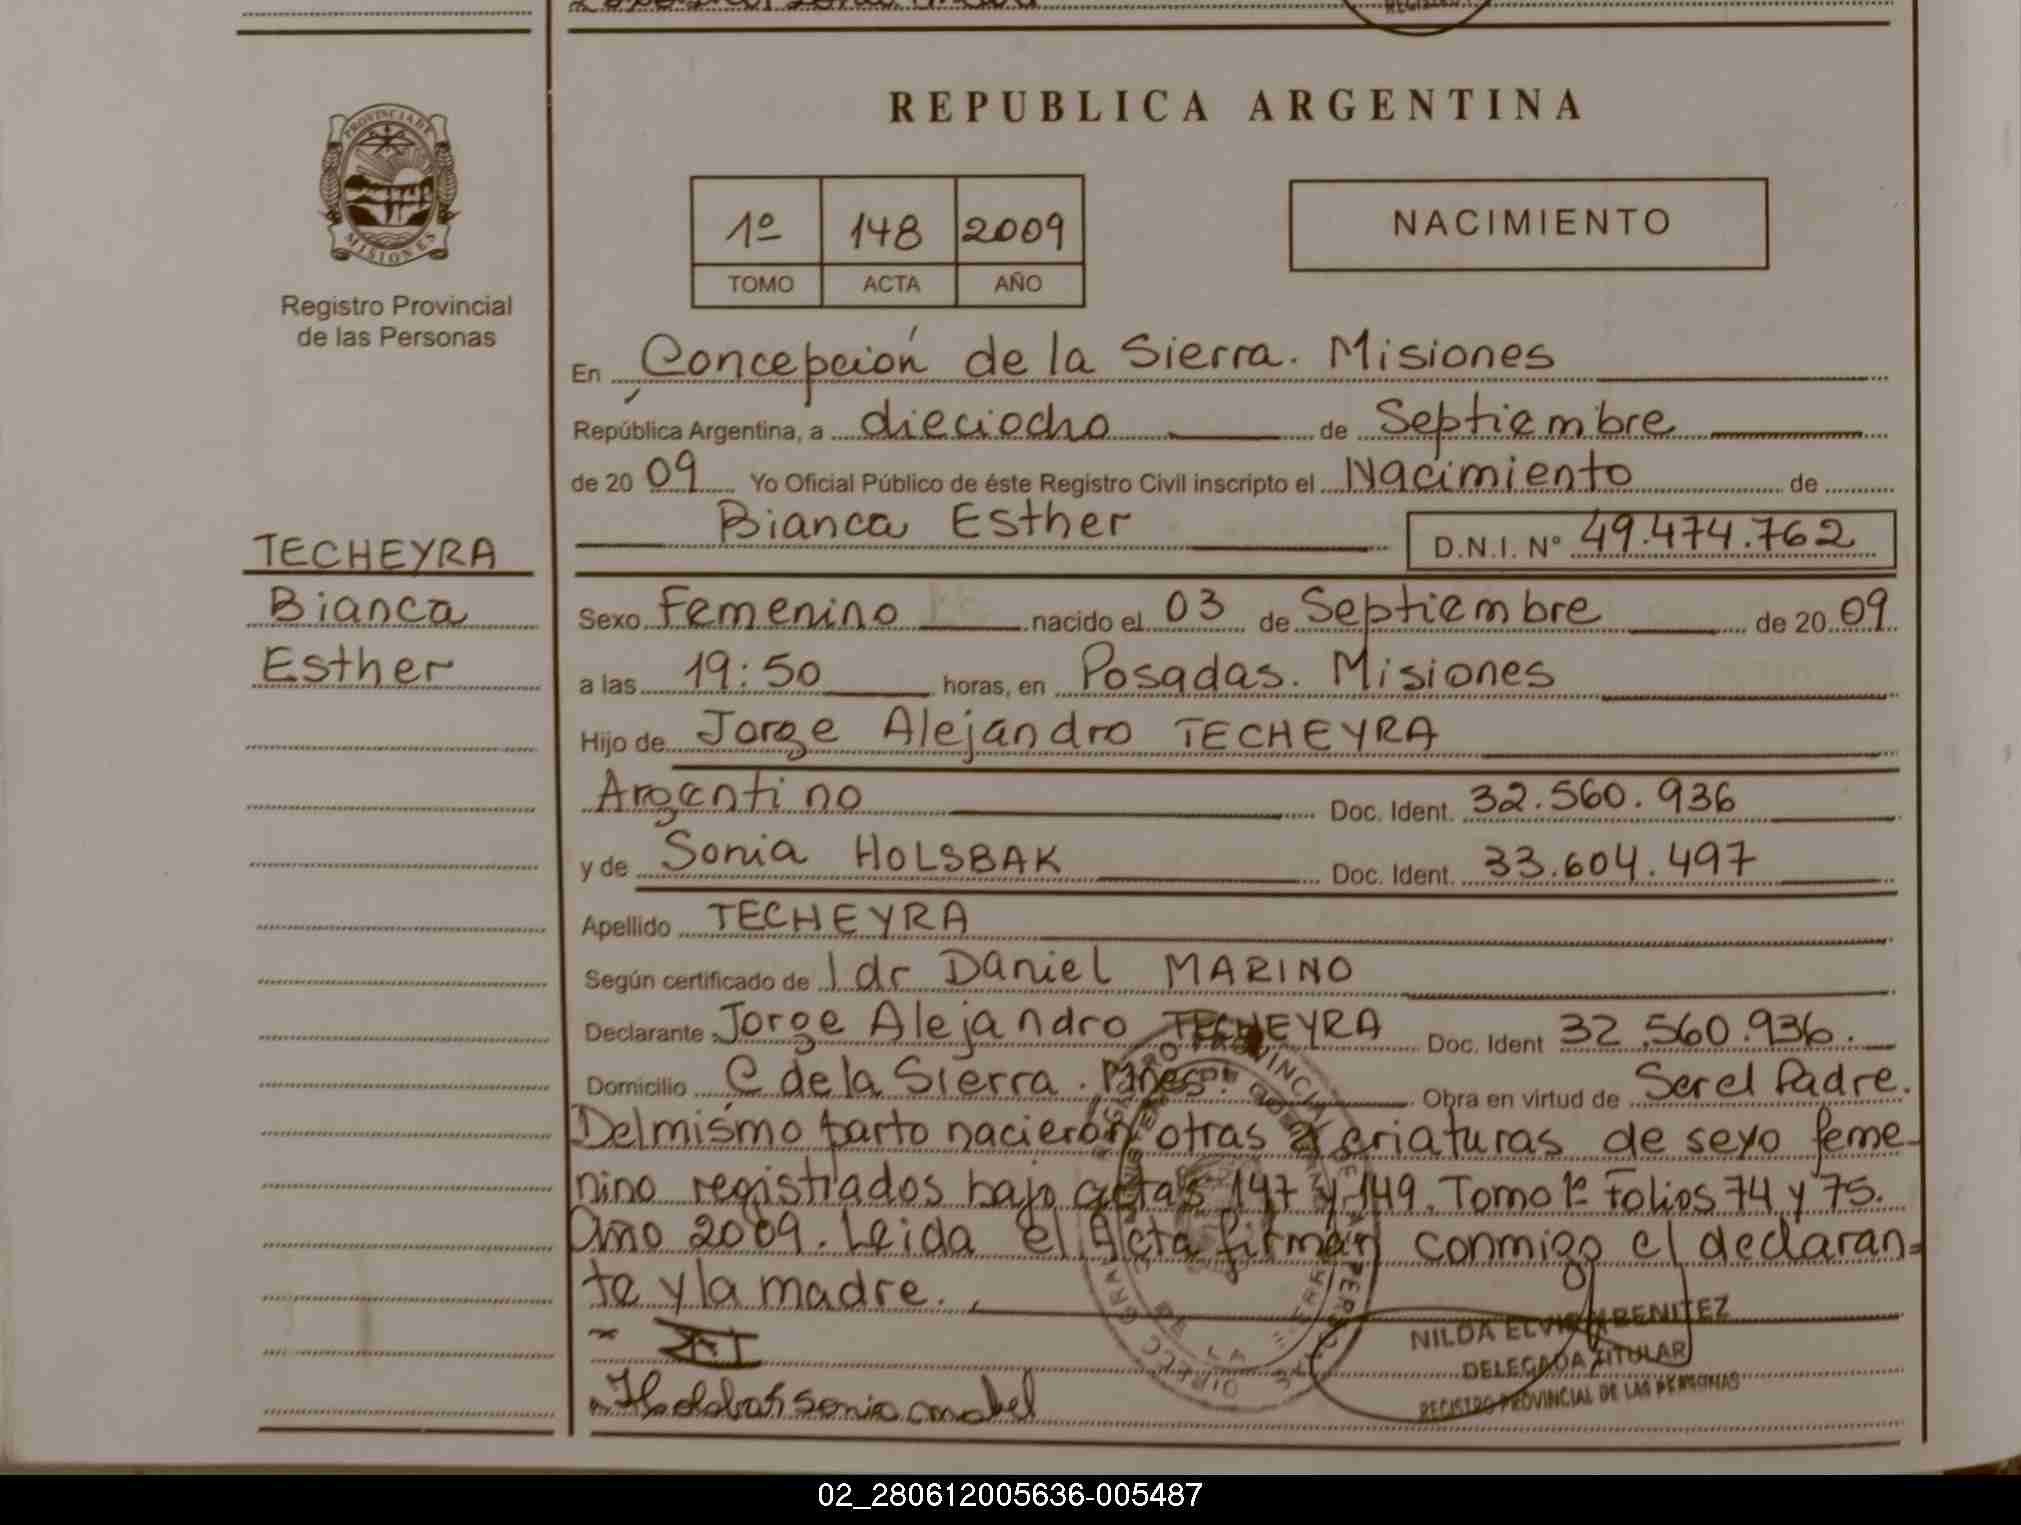 REPUBLICA ARGENTINA
PROVINCIA DE
MISIONES
Registro Provincial
de las Personas
1º 148 2009
TOMO ACTA AÑO
NACIMIENTO
En Concepción de la Sierra. Misiones
República Argentina, a dieciocho de Septiembre
de 20 09 Yo Oficial Público de éste Registro Civil inscripto el Nacimiento de
Bianca Esther D.N.I. Nº 49.474.762
TECHEYRA
Bianca
Esther
Sexo Femenino nacido el 03 de Septiembre de 20 09
a las 19:50 horas, en Posadas. Misiones
Hijo de Jorge Alejandro TECHEYRA
Argentino Doc. Ident. 32.560.936
y de Sonia HOLSBAK Doc. Ident. 33.604.497
Apellido TECHEYRA
Según certificado de 1 dr Daniel MARINO
Declarante Jorge Alejandro TECHEYRA Doc. Ident 32.560.936.
Domicilio C de la Sierra. Obra en virtud de Ser el Padre.
Del mismo parto nacieron otras 2 criaturas de sexo feme-
nino registrados bajo actas 147 y 149. Tomo 1º Folios 74 y 75.
Año 2009. Leida el Acta firman conmigo el declaran-
te y la madre.
NILDA ELVIRA BENITEZ
DELEGADA TITULAR
REGISTRO PROVINCIAL DE LAS PERSONAS
sonia mabel
02_280612005636-005487